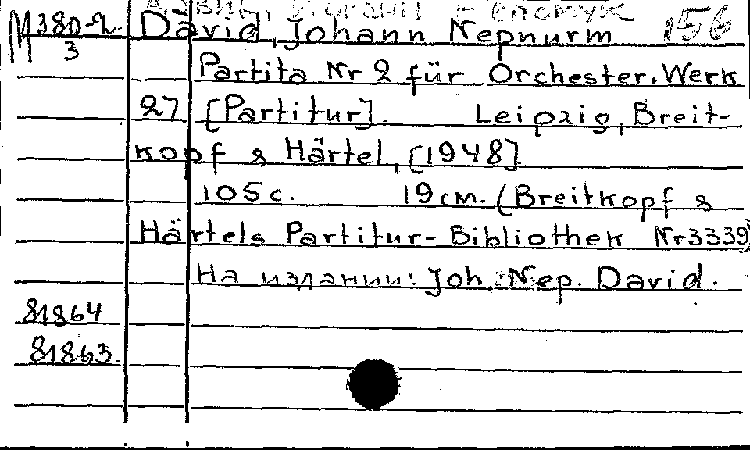 M 380-2
3
David, Johann Nepnurm 156
Partita Nr 2 für Orchester. Werk
27 [Partitur]. Leipzig, Breit-
kopf & Härtel, [1948]
105 c. 19 cm. (Breitkopf &
Härtels Partitur-Bibliothek Nr 3339)
На издании: Joh. Nep. David.
81864
81863